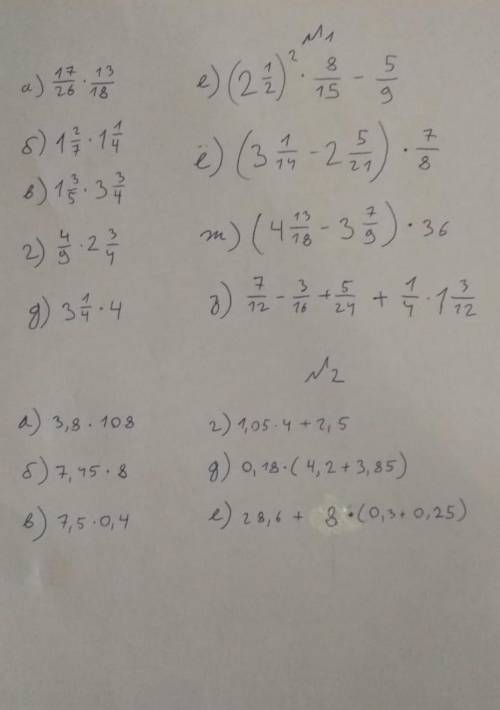 №1
а) 17/26 · 13/18
б) 1 2/7 · 1 1/4
в) 1 3/5 · 3 3/4
г) 4/9 · 2 3/4
д) 3 1/4 · 4
е) (2 1/2)² · 8/15 - 5/9
ё) (3 1/14 - 2 5/21) · 7/8
ж) (4 13/18 - 3 7/9) · 36
з) 7/12 - 3/16 + 5/24 + 1/4 · 1 3/12
№2
а) 3,8 · 108
б) 7,45 · 8
в) 7,5 · 0,4
г) 1,05 · 4 + 2,5
д) 0,18 · (4,2 + 3,85)
е) 28,6 + 8 · (0,3 + 0,25)